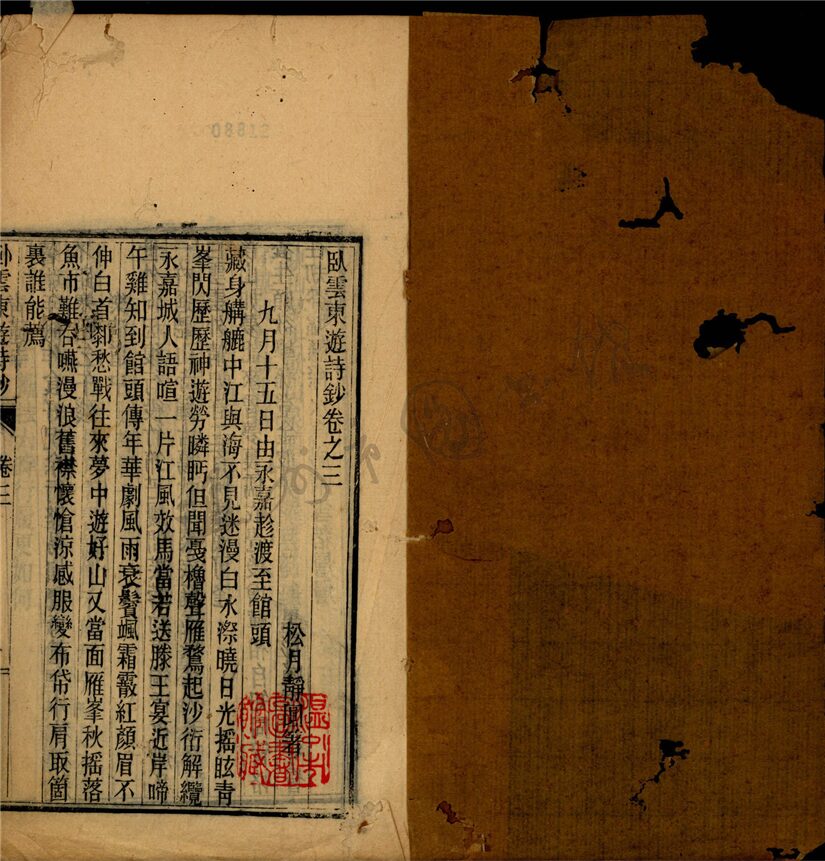 08812
臥雲東遊詩鈔卷之三
松月靜圃著
九月十五日由永嘉趁渡至館頭
藏身艑艫中江與海不見迷漫白水漈曉日光搖眩青
峯閃歷歷神遊勞瞵眄但聞戞櫓聲雁鶩起沙衍解纜
永嘉城人語喧一片江風效馬當若送滕王宴近岸啼
午雞知到館頭傳年華劇風雨衰鬢颯霜霰紅顏眉不
伸白首愁戰往來夢中遊好山又當面雁峯秋搖落
魚市難吞嚥漫浪舊襟懷愴涼感服變布帒行肩取箇
裏誰能薦
臥雲東遊詩鈔
卷三